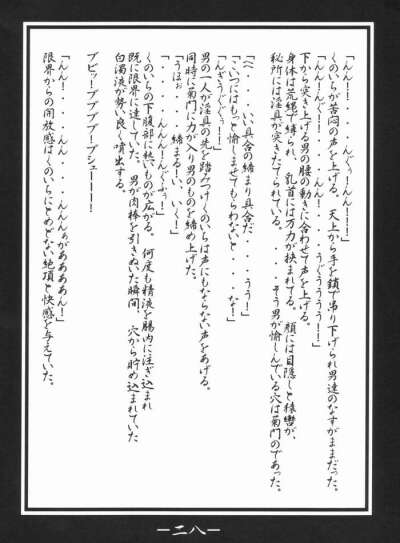 「んん！・・・んぐぅーんん！！」
くのいちが苦悶の声を上げる。天上から手を鎖で吊り下げられ男達のなすがままだった。
「んん！んん！・・・んん！・・・うぐううう！！」
下から突き上げる男の腰の動きに合わせて声を上げる。
身体は荒縄で縛られ、乳首には万力が挟まれてる。顔には目隠しと猿轡が、
秘所には淫具が突きたてられている。・・・そう男が愉しんでいる穴は菊門のであった。
「へ・・・いい具合の締まり具合だ・・・うう！」
「こいつにはもっと愉しませてもらわないと・・・な！」
「んぎうぐぐぅ！！」
男の一人が淫具の先を踏みつけくのいちは声にもならない声をあげる。
同時に菊門に力が入り男のものを締め上げた。
「うほぉ・・・締まる！い、いく！」
「・・・・んんん！んぐふぅ！」
くのいちの下腹部に熱いものが広がる。何度も精液を腸内に注ぎ込まれ
既に限界に達していた。男が肉棒を引きぬいた瞬間、穴から貯め込まれていた
白濁液が勢い良く噴出する。
ブビッ！ブブブブーブシューーー！
「んん！・・・んん・・んんんぁがああああん！」
限界からの開放感はくのいちにとめどない絶頂と快感を与えていた。
―二八―